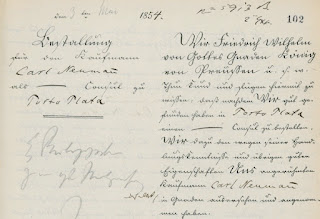 den 3ten Mai 1854.
102
Bestallung
für den Kaufmann
Carl Neumann
als Consul zu
Porto Plata
Wir Friedrich Wilhelm
von Gottes Gnaden König
von Preußen u. s. w.
Thun kund und fügen hiermit zu
wissen, daß nachdem Wir gut ge-
funden haben in Porto Plata
einen Consul zu bestellen.
Wir dazu den wegen seiner Hand-
lungskenntnisse und übrigen guten
Eigenschaften Uns angerühmten
Kaufmann Carl Neumann
in Gnaden ausersehen und angenom-
men haben.